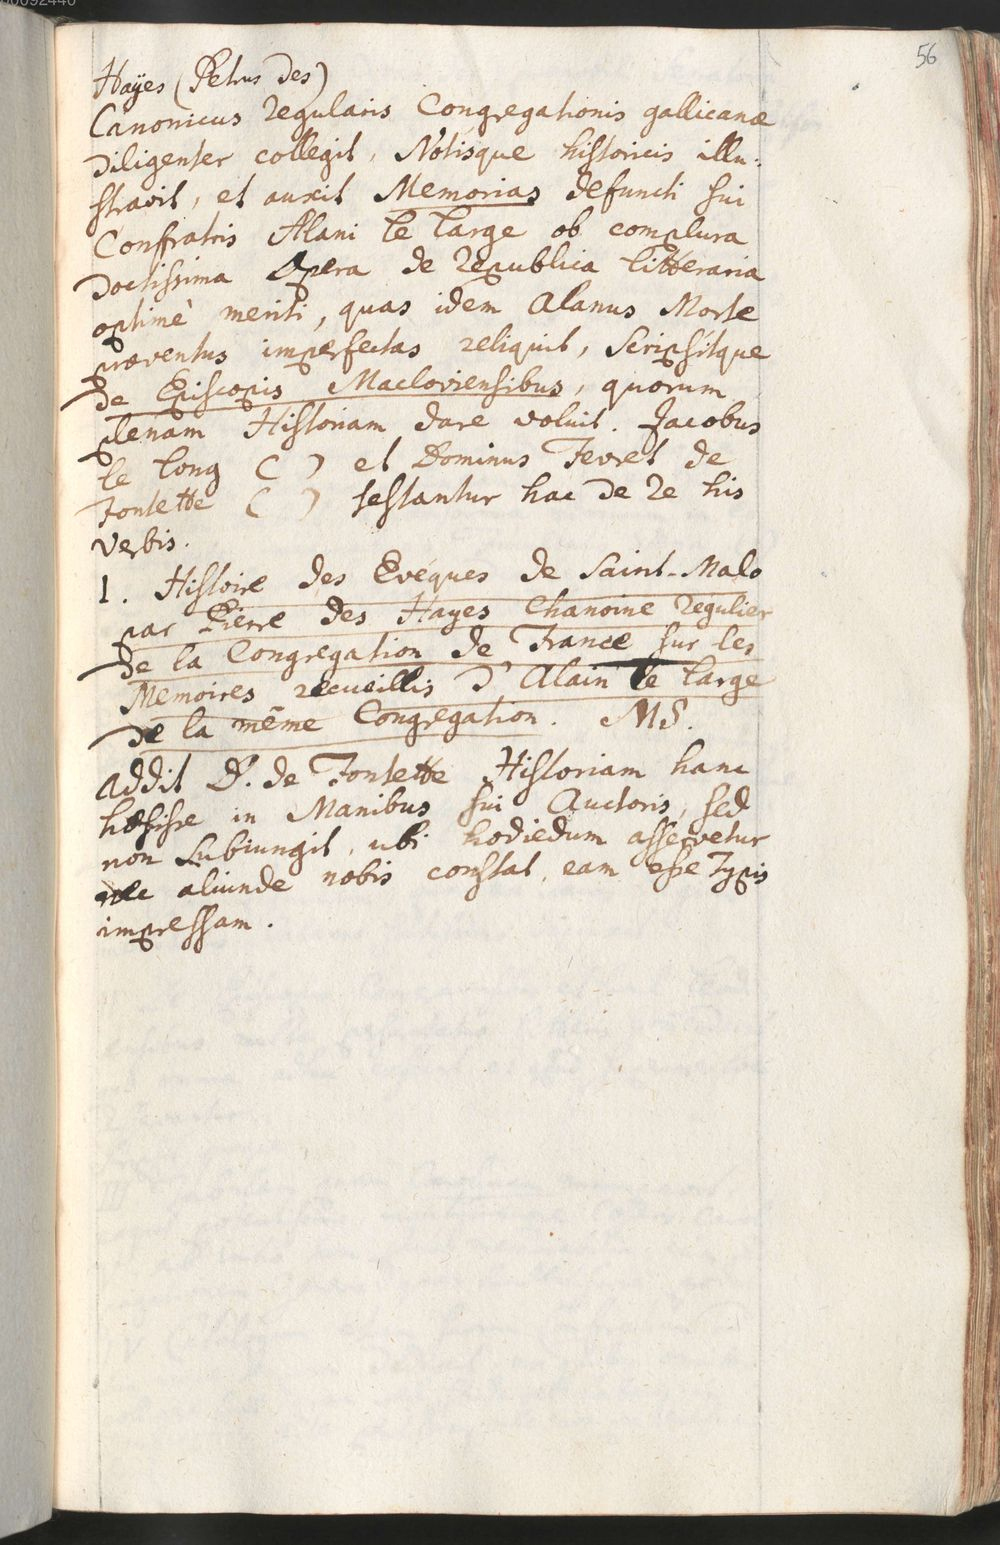 00092440
56
Haÿes (Petrus Des)
Canonicus Regularis Congregationis gallicanæ
Diligenter collegit, Notisque historicis illu-
stravit, et auxit Memorias defuncti sui
Confratris Alani le Large ob complura
Doctissima Opera de Republica litteraria
optimè meriti, quas idem Alanus Morte
præventus imperfectas reliquit, Scripsitque
de Episcopis Macloviensibus, quorum
plenam Historiam dare voluit. Jacobus
le Long ( ) et Dominus Fevret de
Fontette ( ) testantur hac De Re his
Verbis.
1. Histoire des Evéques de Saint-Malo
par Pierre des Hayes Chanoine Régulier
de la Congregation de France sur les
Memoires recueillis D'Alain le Large
de la même Congregation. MS.
Addit D. de Fontette Historiam hanc
hæsisse in Manibus sui Auctoris, sed
non Subiungit, ubi hodiedum asservetur
nec aliunde nobis constat, eam esse Typis
impressam.